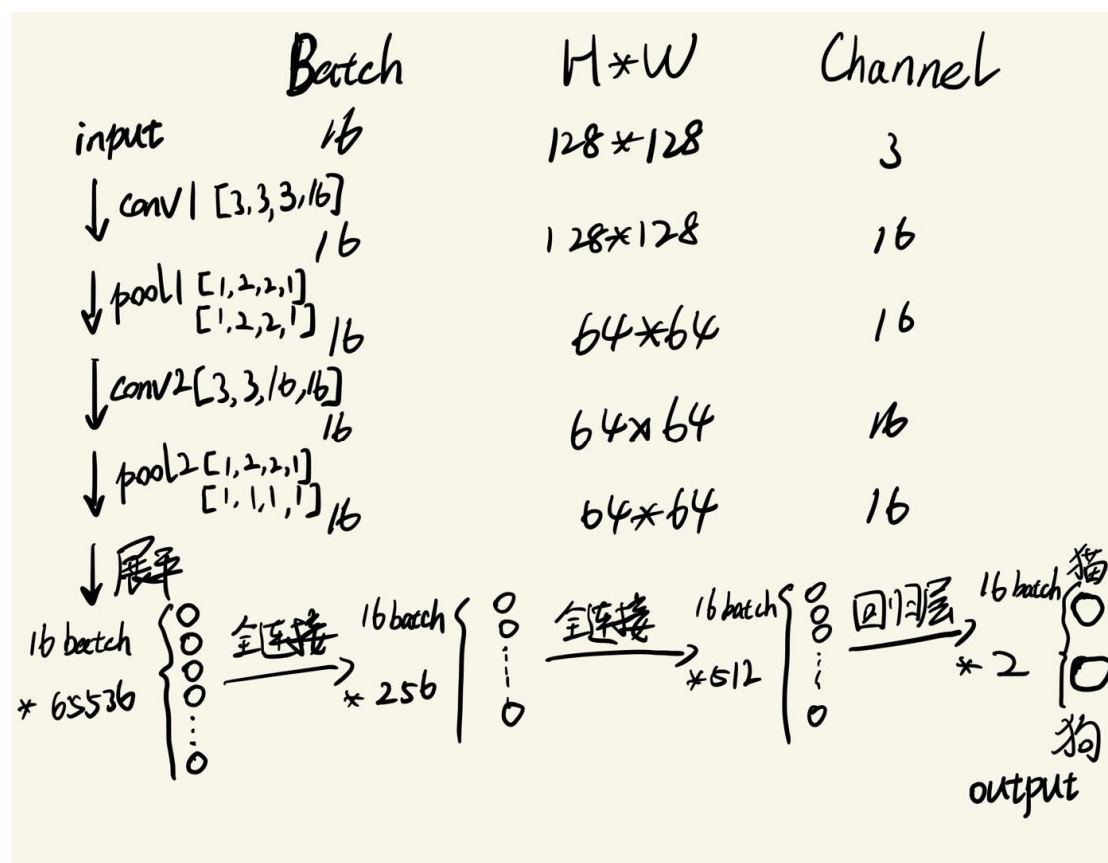 Batch H*W Channel
input 16 128*128 3
conv1 [3,3,3,16]
16 128*128 16
pool1 [1,2,2,1]
[1,2,2,1]
16 64*64 16
conv2[3,3,16,16]
16 64*64 16
pool2[1,2,2,1]
[1,1,1,1]
16 64*64 16
展平
16 batch * 65536
全连接
16 batch * 256
全连接
16 batch *512
回归层
16 batch * 2
猫
狗
output